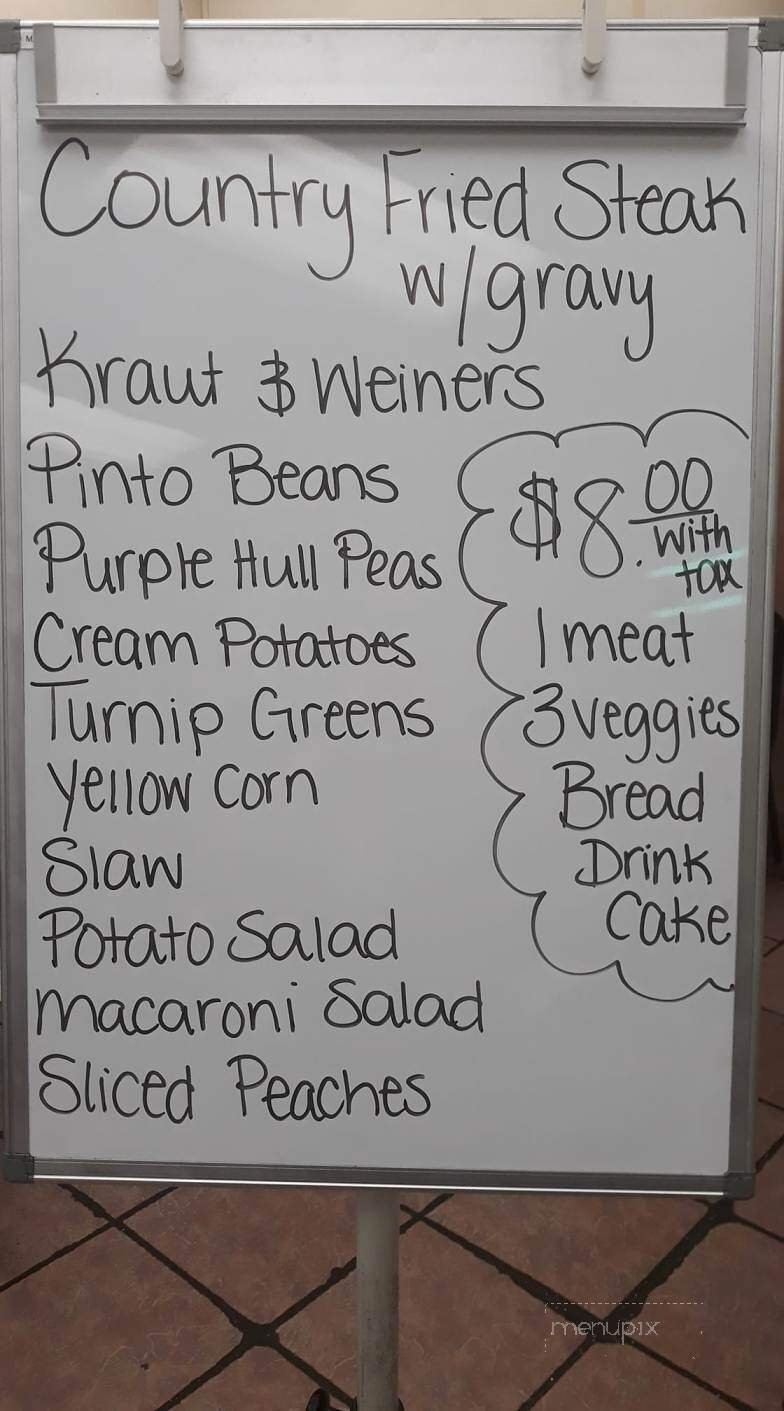 Country Fried Steak
w/gravy
Kraut & Weiners
Pinto Beans
Purple Hull Peas
Cream Potatoes
Turnip Greens
Yellow Corn
Slaw
Potato Salad
Macaroni Salad
Sliced Peaches
$8.00
with
tax
1 meat
3 veggies
Bread
Drink
Cake
menupix